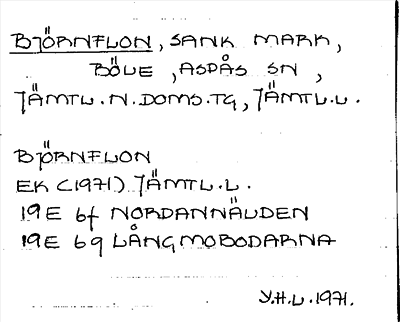 BJÖRNFLON, SANK MARK,
BÖLE, ASPÅS SN,
JÄMTL.N.DOMS.TG, JÄMTL.L.
BJÖRNFLON
EK (1971) JÄMTL.L.
19E 6f NORDANNÄLDEN
19E 6g LÅNGMOBODARNA
Y.H.L. 1971.